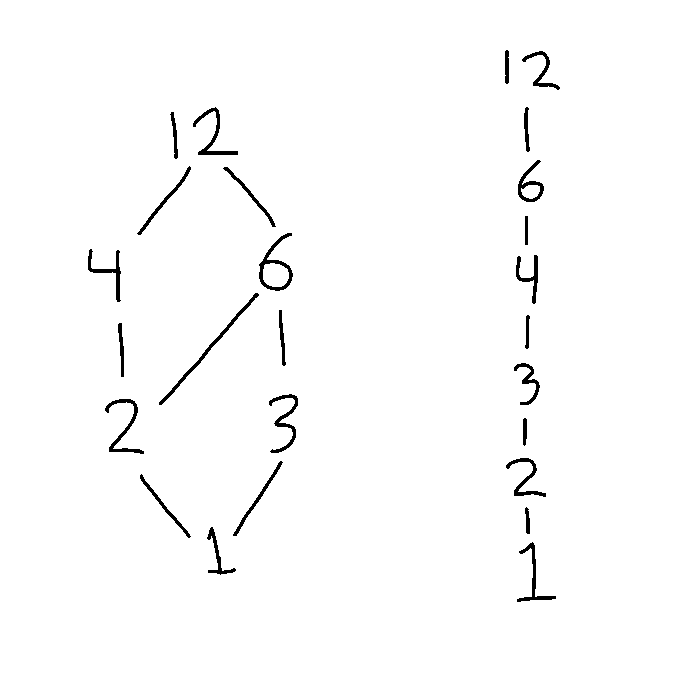 12
4 6
2 3
1
12
6
4
3
2
1